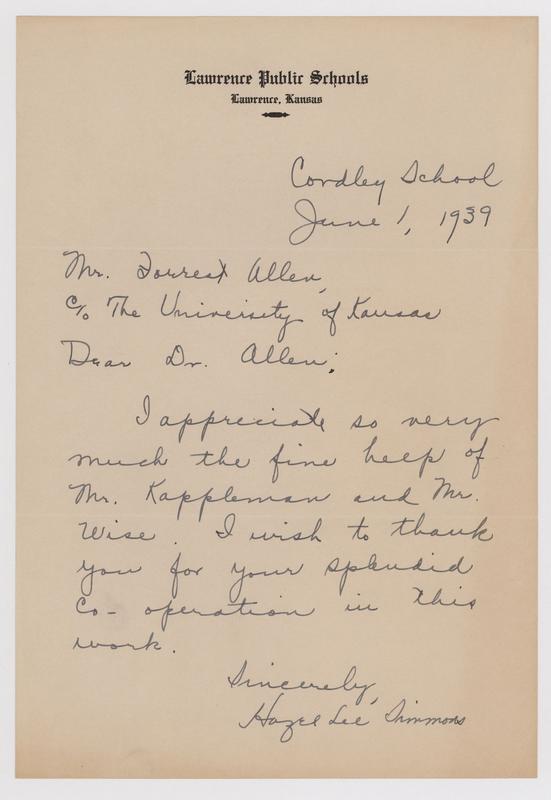 Lawrence Public Schools
Lawrence, Kansas
Cordley School
June 1, 1939
Mr. Forrest Allen,
c/o The University of Kansas
Dear Dr. Allen;
I appreciate so very
much the fine help of
Mr. Kappleman and Mr.
Wise. I wish to thank
you for your splendid
co-operation in this
work.
Sincerely,
Hazel Lee Simmons